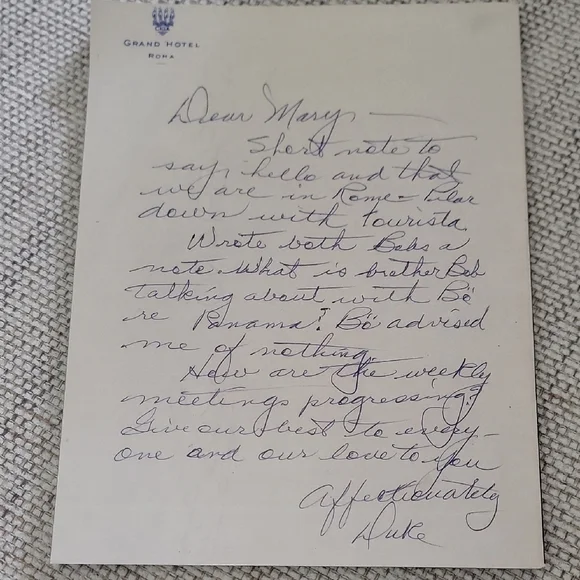 GRAND HOTEL
ROMA
Dear Mary, —
Short note to
say hello and that
we are in Rome - Pilar
down with tourista
Wrote both Bobs a
note. What is brother Bob
talking about with Bö
re Panama? Bö advised
me of nothing.
How are the weekly
meetings progressing?
Give our best to every-
one and our love to you
Affectionately
Duke